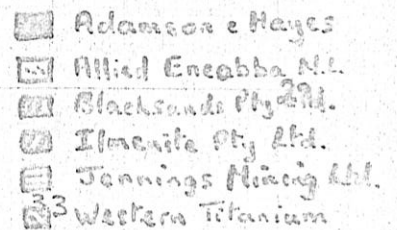 Adamson e Hayes
Allied Eneabba N.L.
Blacksands Pty Ltd.
Ilmenite Pty Ltd.
Jennings Mining Ltd.
33 Western Titanium